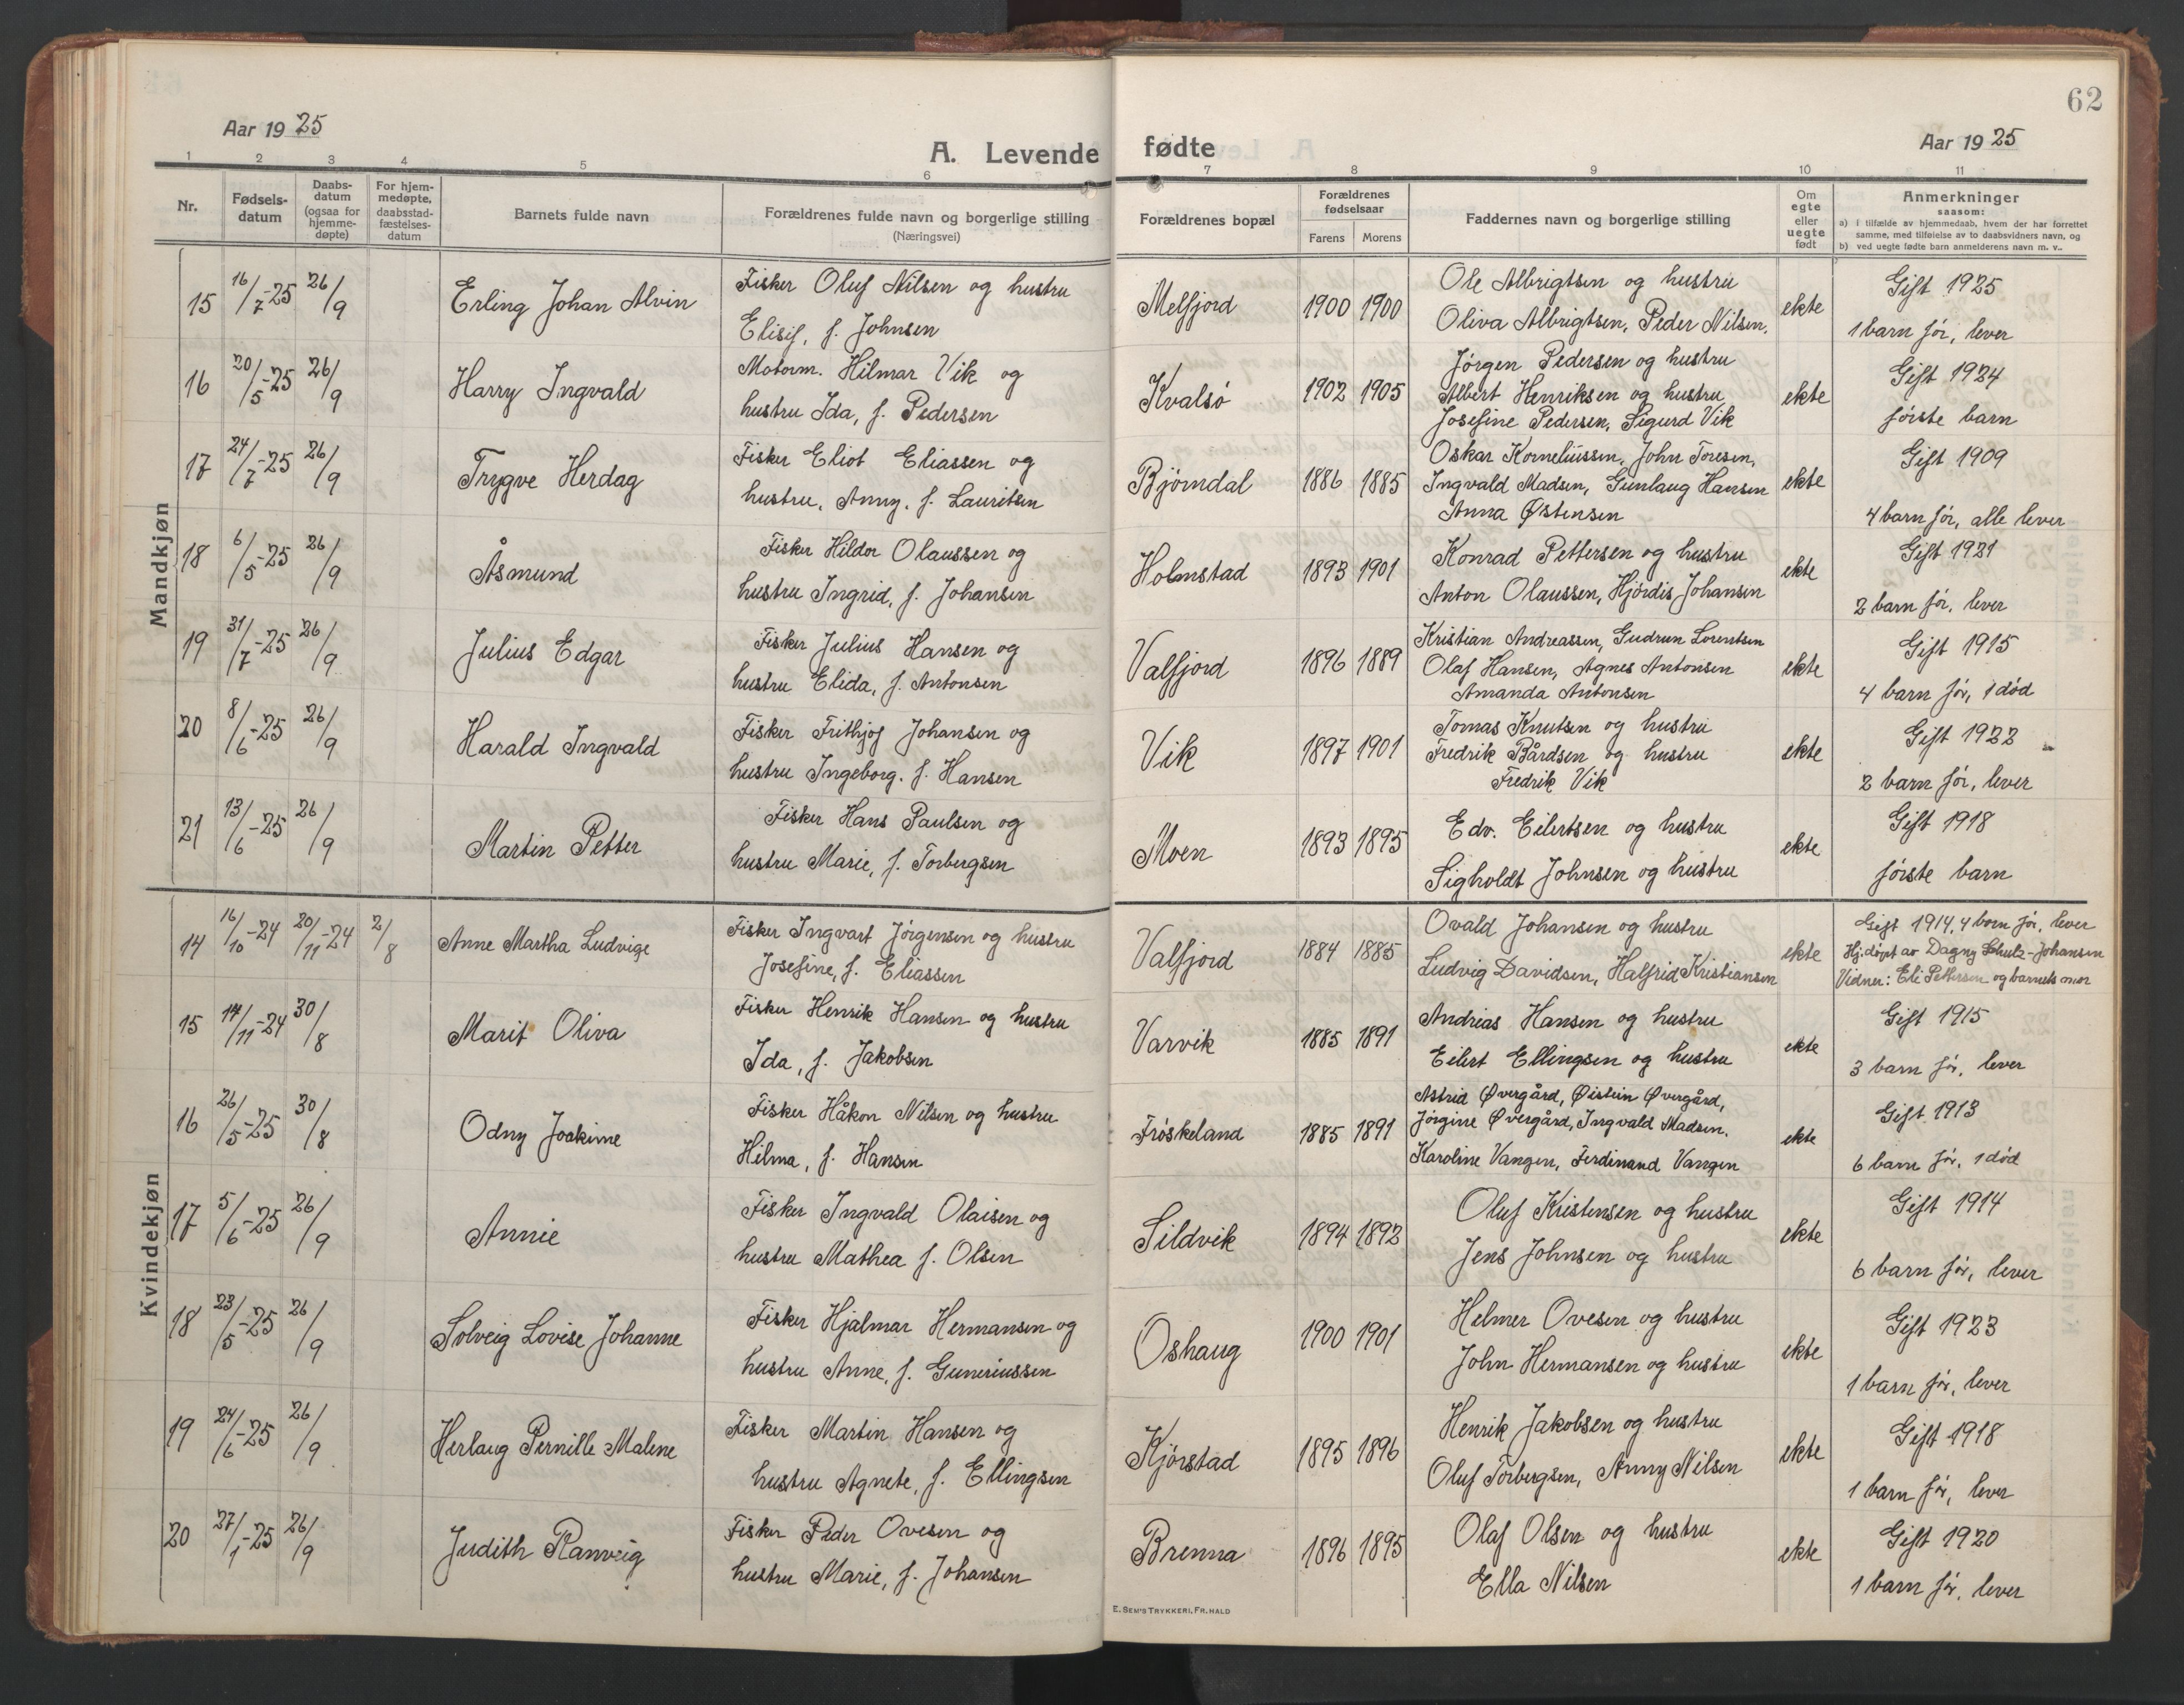 62
Aar 1925
A. Levende fødte
Aar 1925
1 2 3 4 5 6 7 8 9 10 11
Nr.
Fødsels-
datum
Daabs-
datum
(ogsaa for
hjemme-
døpte)
For hjem-
medøpte,
daabsstad-
fæstelses-
datum
Barnets fulde navn
Forældrenes fulde navn og borgerlige stilling
(Næringsvei)
Forældrenes bopæl
Forældrenes
fødselsaar
Farens Morens
Faddernes navn og borgerlige stilling
Om
egte
eller
uegte
født
Anmerkninger
saasom:
a) i tilfælde av hjemmedaab, hvem der har forrettet
samme, med tilføielse av to daabsvidners navn, og
b) ved uegte fødte barn anmelderens navn m. v..
Mandkjøn
15 16/7-25 26/9 Erling Johan Alvin
Fisker Oluf Nilsen og hustru
Elisif, f. Johnsen
Melfjord 1900 1900
Ole Albrigtsen og hustru
Oliva Albrigtsen, Peder Nilsen.
ekte
Gift 1925
1 barn før, lever
16 20/5-25 26/9 Harry Ingvald
Motorm. Hilmar Vik og
hustru Ida, f. Pedersen
Kvalsø 1902 1905
Jørgen Pedersen og hustru
Albert Henriksen og hustru
Josefine Pedersen, Sigurd Vik
ekte
Gift 1924
første barn
17 24/7-25 26/9 Trygve Herdag
Fisker Eliot Eliassen og
hustru, Anny, f. Lauritsen
Bjørndal 1886 1885
Oskar Korneliussen, John Toresen,
Ingvald Madsen, Gunlaug Hansen
Anna Østensen
ekte
Gift 1909
4 barn før, alle lever
18 6/5-25 26/9 Åsmund
Fisker Hildor Olaussen og
hustru Ingrid, f. Johansen
Holmstad 1893 1901
Konrad Pettersen og hustru
Anton Olaussen, Hjørdis Johansen
ekte
Gift 1921
2 barn før, lever
19 31/7-25 26/9 Julius Edgar
Fisker Julius Hansen og
hustru Elida, f. Antonsen
Valfjord 1896 1889
Kristian Andreassen, Gudrun Lorentsen
Olaf Hansen, Agnes Antonsen
Amanda Antonsen
ekte
Gift 1915
4 barn før, 1 død
20 8/6-25 26/9 Harald Ingvald
Fisker Frithjof Johansen og
hustru Ingeborg. f. Hansen
Vik 1897 1901
Tomas Knutsen og hustru
Fredrik Bårdsen og hustru
Fredrik Vik
ekte
Gift 1922
2 barn før, lever
21 13/6-25 26/9 Martin Petter
Fisker Hans Paulsen og
hustru Marie, f. Torbergsen
Moen 1893 1895
Edv. Eilertsen og hustru
Sigholdt Johnsen og hustru
ekte
Gift 1918
første barn
Kvindekjøn
14 16/10-24 20/11-24 2/8 Anne Martha Ludvige
Fisker Ingvart Jørgensen og hustru
Josefine, f. Eliassen
Valfjord 1884 1885
Ovald Johansen og hustru
Ludvig Davidsen, Halfrid Kristiansen
ekte
Gift 1914, 4 barn før, lever
Hj.døpt av Dagny Schulz-Johansen
Vidner: Eli Pettersen og barnets mor
15 14/11-24 30/8 Marit Oliva
Fisker Henrik Hansen og hustru
Ida, f. Jakobsen
Varvik 1885 1891
Andreas Hansen og hustru
Eilert Ellingsen og hustru
ekte
Gift 1915
3 barn før, lever
16 26/5-25 30/8 Odny Joakime
Fisker Håkon Nilsen og hustru
Hilma, f. Hansen
Frøskeland 1885 1891
Astrid Øvergård, Øistein Øvergård,
Jørgine Øvergård, Ingvald Madsen.
Karoline Vangen, Ferdinand Vangen
ekte
Gift 1913
6 barn før, 1 død
17 5/6-25 26/9 Annie
Fisker Ingvald Olaisen og
hustru Mathea f. Olsen
Sildvik 1894 1892
Oluf Kristensen og hustru
Jens Johnsen og hustru
ekte
Gift 1914
6 barn før, lever
18 23/5-25 26/9 Solveig Lovise Johanne
Fisker Hjalmar Hermansen og
hustru Anne, f. Guneriussen
Oshaug 1900 1901
Helmer Ovesen og hustru
John Hermansen og hustru
ekte
Gift 1923
1 barn før, lever
19 24/6-25 26/9 Herlaug Pernille Malene
Fisker Martin Hansen og
hustru Agnete, f. Ellingsen
Kjørstad 1895 1896
Henrik Jakobsen og hustru
Oluf Torbergsen, Anny Nilsen
ekte
Gift 1918
1 barn før, lever
20 27/1-25 26/9 Judith Ranveig
Fisker Peder Ovesen og
hustru Marie, f. Johansen
Brenna 1896 1895
Olaf Olsen og hustru
Ella Nilsen
ekte
Gift 1920
1 barn før, lever
E. SEM'S TRYKKERI, FR. HALD